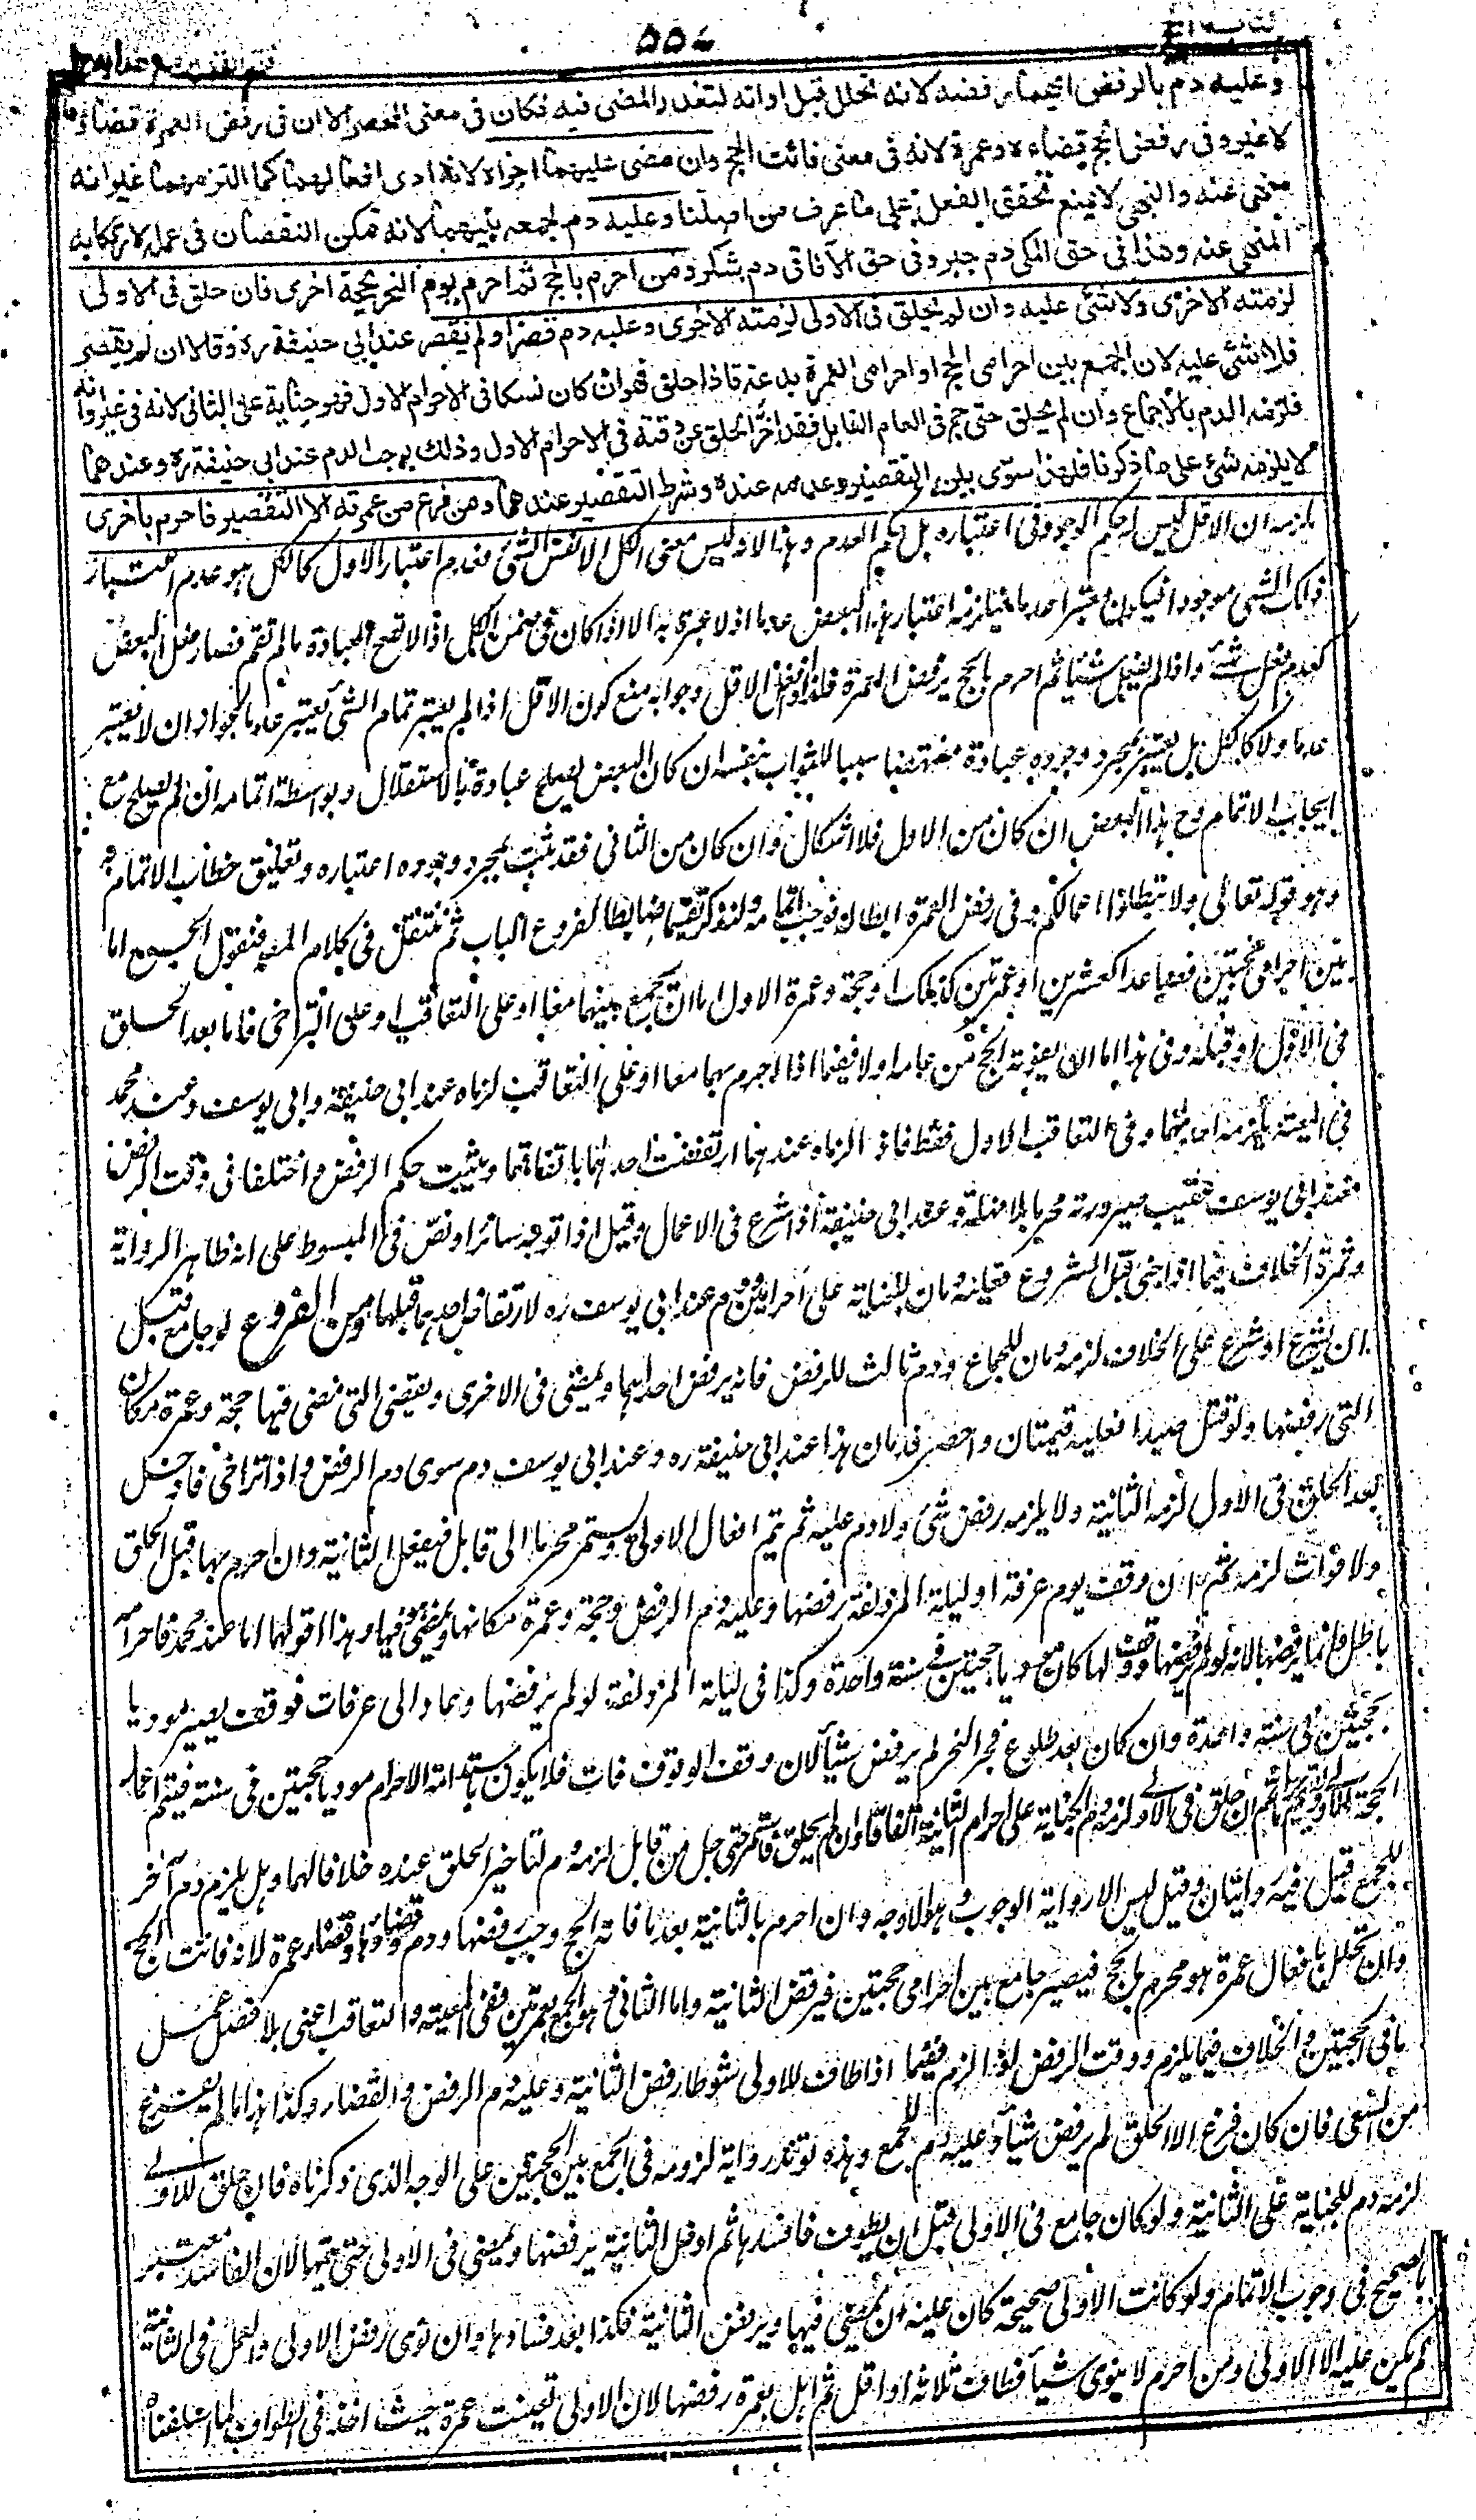 كتاب الحج
٥٥٧
فتح القدير مع هدايه ج ١
وعليه دم بالرفض ايهما رفضه لانه تحلل قبل اوانه لتعذر المضى فيه فكان فى معنى المحصر الا ان فى رفض العمرة قضاؤها
لا غير وفى رفض الحج قضاءه وعمرة لانه فى معنى فائت الحج وان مضى عليهما اجزاه لانه ادى افعالهما كما التزمهما غير انه
منهى عنه والنهى لا يمنع تحقق الفعل على ما عرف من اصلنا وعليه دم لجمعه بينهما لانه تمكن النقصان فى عمله لارتكابه
المنهى عنه وهذا فى حق المكى دم جبر وفى حق الآفاقى دم شكر ومن احرم بالحج ثم احرم يوم النحر بحجة اخرى فان حلق فى الاولى
لزمته الاخرى ولا شئى عليه وان لم يحلق فى الاولى لزمته الاخرى وعليه دم قصر او لم يقصر عند ابى حنيفة ره وقالا ان لم يقصر
فلا شئى عليه لان الجمع بين احرامى الحج او احرامى العمرة بدعة فاذا حلق فهو ان كان نسكا فى الاحرام الاول فهو جناية على الثانى لانه فى غير اوانه
فلزمه الدم بالاجماع وان لم يحلق حتى حج فى العام القابل فقد اخر الحلق عن وقته فى الاحرام الاول وذلك يوجب الدم عند ابى حنيفة ره وعندهما
لا يلزمه شئ على ما ذكرنا فلهذا سوّى بين التقصير وعدمه عنده وشرط التقصير عندهما ومن فرغ من عمرته الا التقصير فاحرم باخرى
يلزمه ان الاقل ليس له حكم الوجود فى اعتباره بل حكم العدم وهذا لانه ليس معنى الكل الا نفس الشئ فعدم اعتبار الاول كالكل هو عدم اعتبار
ذلك الشئ موجودا فيكون معتبرا عدما فيلزمه اعتبار هذا البعض عدما اذ لا عبرة به الا اذا كان فى ضمن الكل اذ لا تصح العبادة ما لم تتم فصار فعل البعض
كعدم فعل شئ واذا لم يفعل شيئا ثم احرم بالحج يرفض العمرة فكذا اذا فعل الاقل وجوابه منع كون الاقل اذا لم يعتبر تمام الشئ يعتبر عدما لجواز ان لا يعتبر
عدما ولا كالكل بل يعتبر بمجرد وجوده عبادة منتهضا سببا للثواب بنفسه ان كان البعض يصلح عبادة بالاستقلال وبواسطة اتمامه ان لم يصلح مع
ايجاب الاتمام وح هذا البعض ان كان من الاول فلا اشكال وان كان من الثانى فقد ثبت بمجرد وجوده اعتباره وتعليق خطاب الاتمام به
وهو قوله تعالى ولا تبطلوا اعمالكم وفى رفض العمرة ابطاله فوجب اتمامه ولنذكر تقسيما ضابطا لفروع الباب ثم ننتقل فى كلام المصـ فنقول الجمع اما
بين احرامى حجتين فصاعدا كعشرين او عمرتين كذلك او حجة وعمرة الاول اما ان يجمع بينهما معا او على التعاقب او على التراخى فاما بعد الحلق
فى الاول او قبله وفى هذا اما ان يفوته الحج من عامه او لا ففيما اذا احرم بهما معا او على التعاقب لزماه عند ابى حنيفة وابى يوسف وعند محمد
فى المعية يلزمه احدهما وفى التعاقب الاول فقط فاذا لزماه عندهما ارتفضت احدهما باتفاقهما ويثبت حكم الرفض واختلفا فى وقت الرفض
فعند ابى يوسف عقيب صيرورته محرما بلا مهلة وعند ابى حنيفة اذا شرع فى الاعمال وقيل اذا توجه سائرا ونصّ فى المبسوط على انه ظاهر الرواية
وثمرة الخلاف فيما اذا جنى قبل الشروع فعليه دمان للجناية على احرامين ودم عند ابى يوسف ره لارتفاض احدهما قبلها ومن الفروع لو جامع قبل
ان يشرع او شرع على الخلاف لزمه دمان للجماع ودم ثالث للرفض فانه يرفض احداهما ويمضى فى الاخرى ويقضى التى مضى فيها حجة وعمرة مكان
التى رفضها ولو قتل صيدا فعليه قيمتان واحصر فدمان هذا عند ابى حنيفة ره وعند ابى يوسف دم سوى دم الرفض واذا تراخى فادخل
بعد الحلق فى الاول لزمه الثانية ولا يلزمه رفض شئ ولا دم عليه ثم يتم افعال الاولى ويستمر محرما الى قابل فيفعل الثانية وان احرم بها قبل الحلق
ولا فوات لزمه ثم ان وقف يوم عرفة او ليلة المزدلفة رفضها وعليه دم الرفض وحجة وعمرة مكانها ويمضى فيها وهذا قولهما اما عند محمد فاحرامه
باطل فانما يرفضها لانه لو لم يرفضها ووقف لها كان مؤديا حجتين فى سنة واحدة وكذا فى ليلة المزدلفة لو لم يرفضها وعاد الى عرفات فوقف يصير موديا
حجتين فى سنة واحدة وان كان بعد طلوع فجر النحر لم يرفض شيأ لان وقت الوقوف فات فلا يكون باستدامة الاحرام موديا حجتين فى سنة فيتم اعمال
الحجة الاولى ثم ان حلق فى الاولى لزمه دم الجناية على احرام الثانية اتفاقا وان لم يحلق فاستمر حتى حل من قابل لزمه دم لتاخير الحلق عنده خلافا لهما وهل يلزم دم آخر
للجمع قيل فيه روايتان وقيل ليس الا رواية الوجوب وهو الاوجه وان احرم بالثانية بعد ما فاته الحج وجب رفضها ودم وقضاؤها وقضاء عمرة لانه فائت الحج
وان تحلل بافعال عمرة هو محرم بالحج فيصير جامع بين احرامى حجتين فيرفض الثانية واما الثانى وهو الجمع بعمرتين ففى المعية والتعاقب اعنى بلا فصل عمل
ما فى الحجتين من الخلاف فيما يلزم ووقت الرفض لو الزم ففيما اذا طاف للاولى شوطا رفض الثانية وعليه دم الرفض والقضاء وكذا هذا ما لم يفرغ
من السعى فان كان فرغ الا الحلق لم يرفض شيأ وعليه دم للجمع وهذه تؤيد رواية لزومه فى الجمع بين الحجتين على الوجه الذى ذكرناه فان حلق للاولى
لزمه دم للجناية على الثانية ولو كان جامع فى الاولى قبل ان يطوف فافسدها ثم ادخل الثانية يرفضها ويمضى فى الاولى حتى يتمها لان الفاسد معتبر
بالصحيح فى وجوب الاتمام ولو كانت الاولى صحيحة كان عليه ان يمضى فيها ويرفض الثانية فكذا بعد فسادها وان نوى رفض الاولى والعمل فى الثانية
لم يكن عليه الا الاولى ومن احرم لا ينوى شيأ فطاف ثلاثة او اقل ثم اهل بعمرة رفضها لان الاولى تعينت عمرة حيث اخذ فى الطواف لما اسلفناه